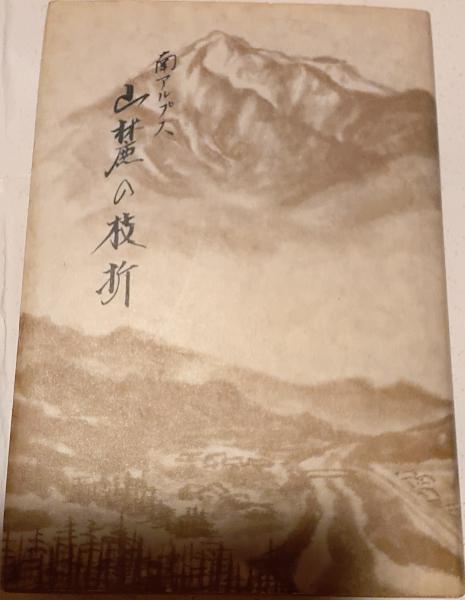 南アルプス
山麓の枝折